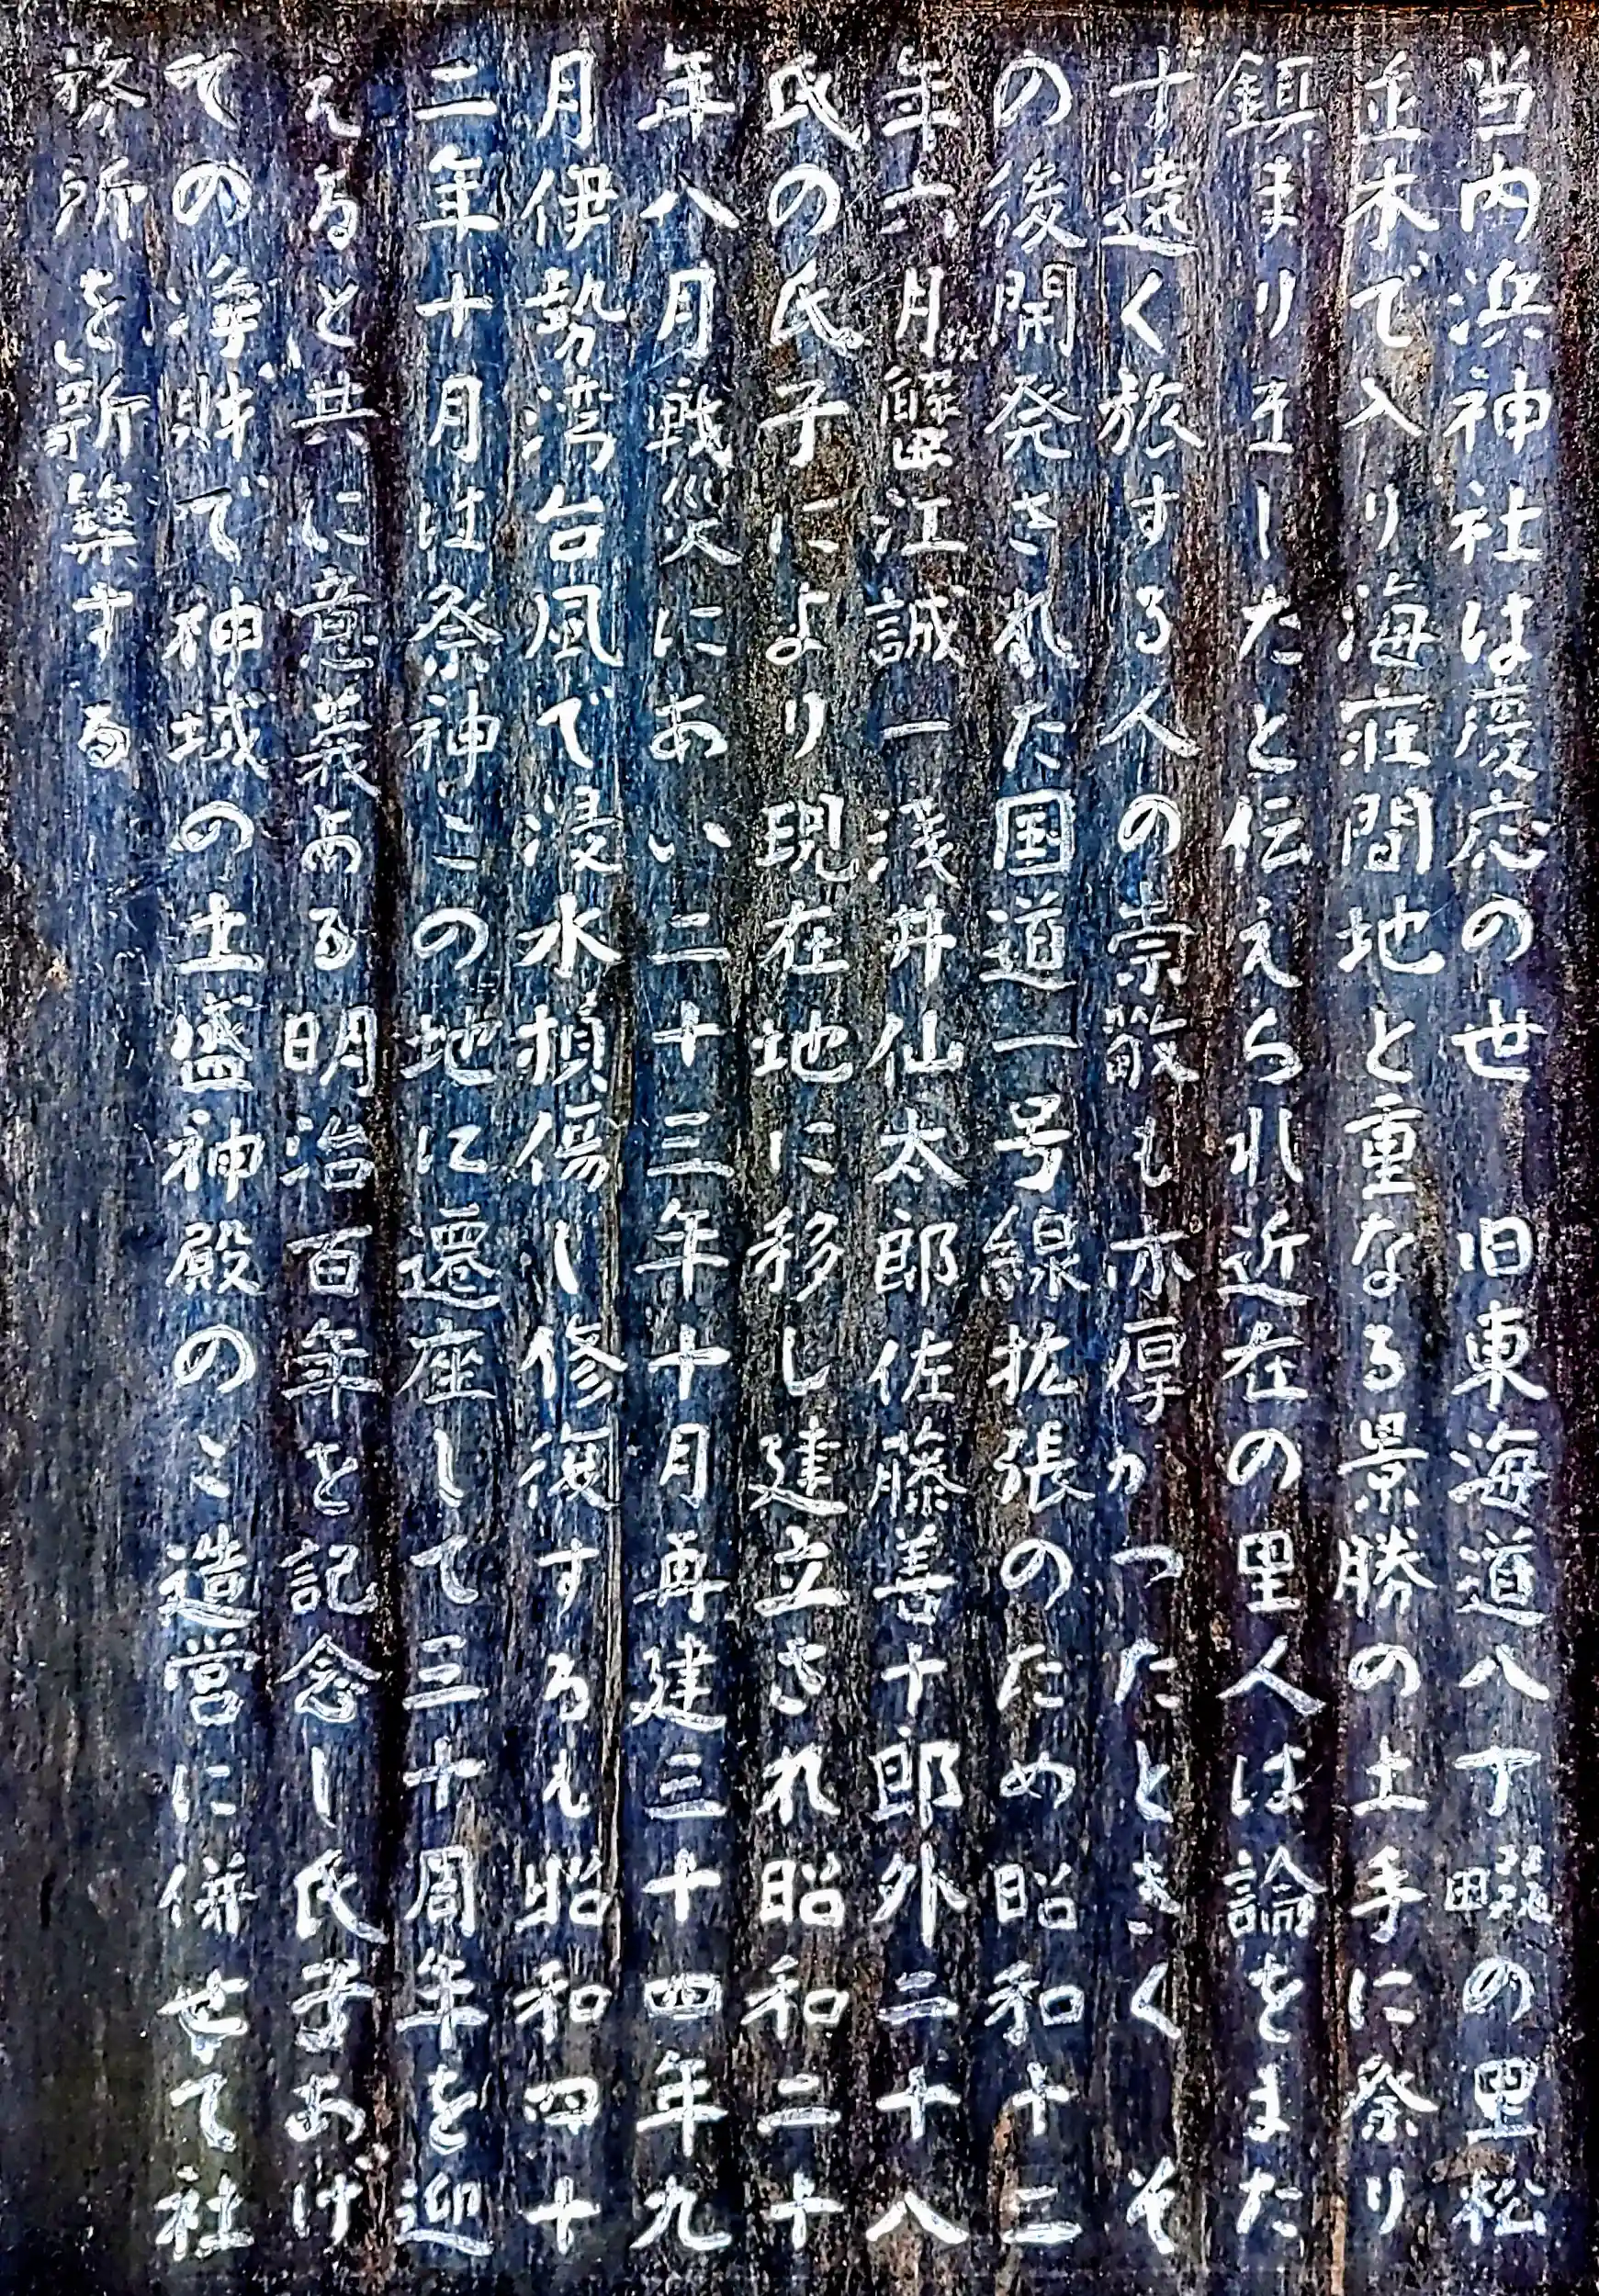 当内浜神社は慶応の世　旧東海道八丁畷の里松
並木で入り海荘間地と重なる景勝の土手に祭り
鎮まり玉したと伝えられ近在の里人は論をまた
す遠く旅する人の崇敬も亦厚かつたときく　そ
の後開発された国道一号線拡張のため昭和十二
年六月蟹江誠一浅井仙太郎佐藤善十郎外二十八
氏の氏子により現在地に移し建立され昭和二十
年八月戦災にあい二十三年十月再建三十四年九
月伊勢湾台風で浸水損傷し修復するも昭和四十
二年十月は祭神この地に遷座して三十周年を迎
えると共に意義ある明治百年を記念し氏子あげ
ての浄財で神域の土盛神殿のご造営に併せて社
務所を新築する